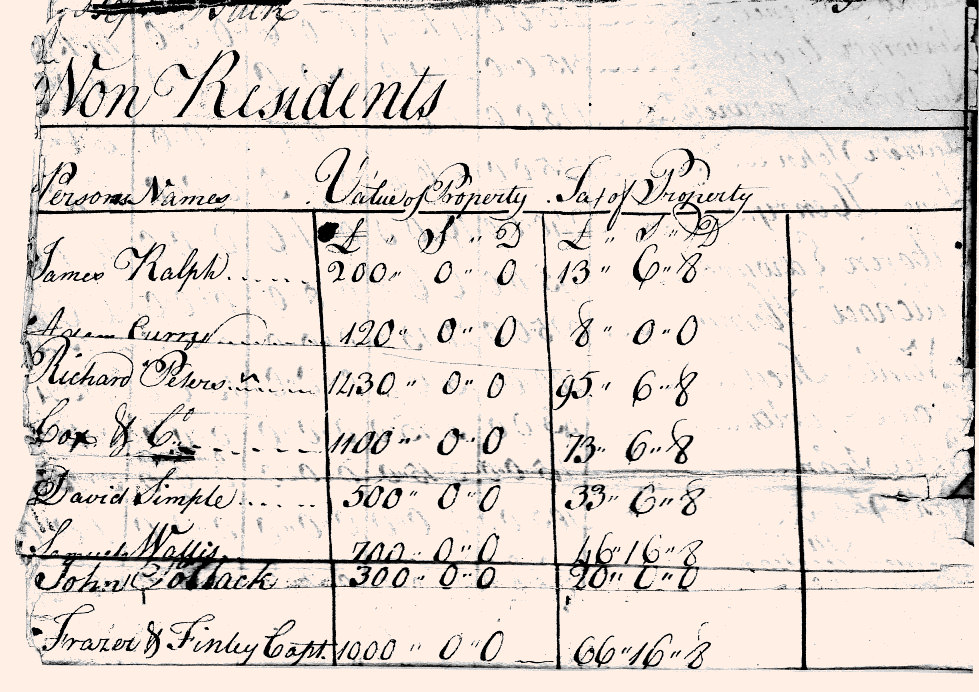 Non Residents
Persons Names Value of Property Tax of Property
£ " S " D £ " S " D
James Ralph 200 " 0 " 0 13 " 6 " 8
Curry 120 " 0 " 0 8 " 0 " 0
Richard Peters 1430 " 0 " 0 95 " 6 " 8
Cox & Co. 1100 " 0 " 0 73 " 6 " 8
David Simple 500 " 0 " 0 33 " 6 " 8
Samuel Wallis 700 " 0 " 0 46 " 16 " 8
John 300 " 0 " 0 20 " 0 " 0
Frazer & Finley Capt. 1000 " 0 " 0 66 " 16 " 8